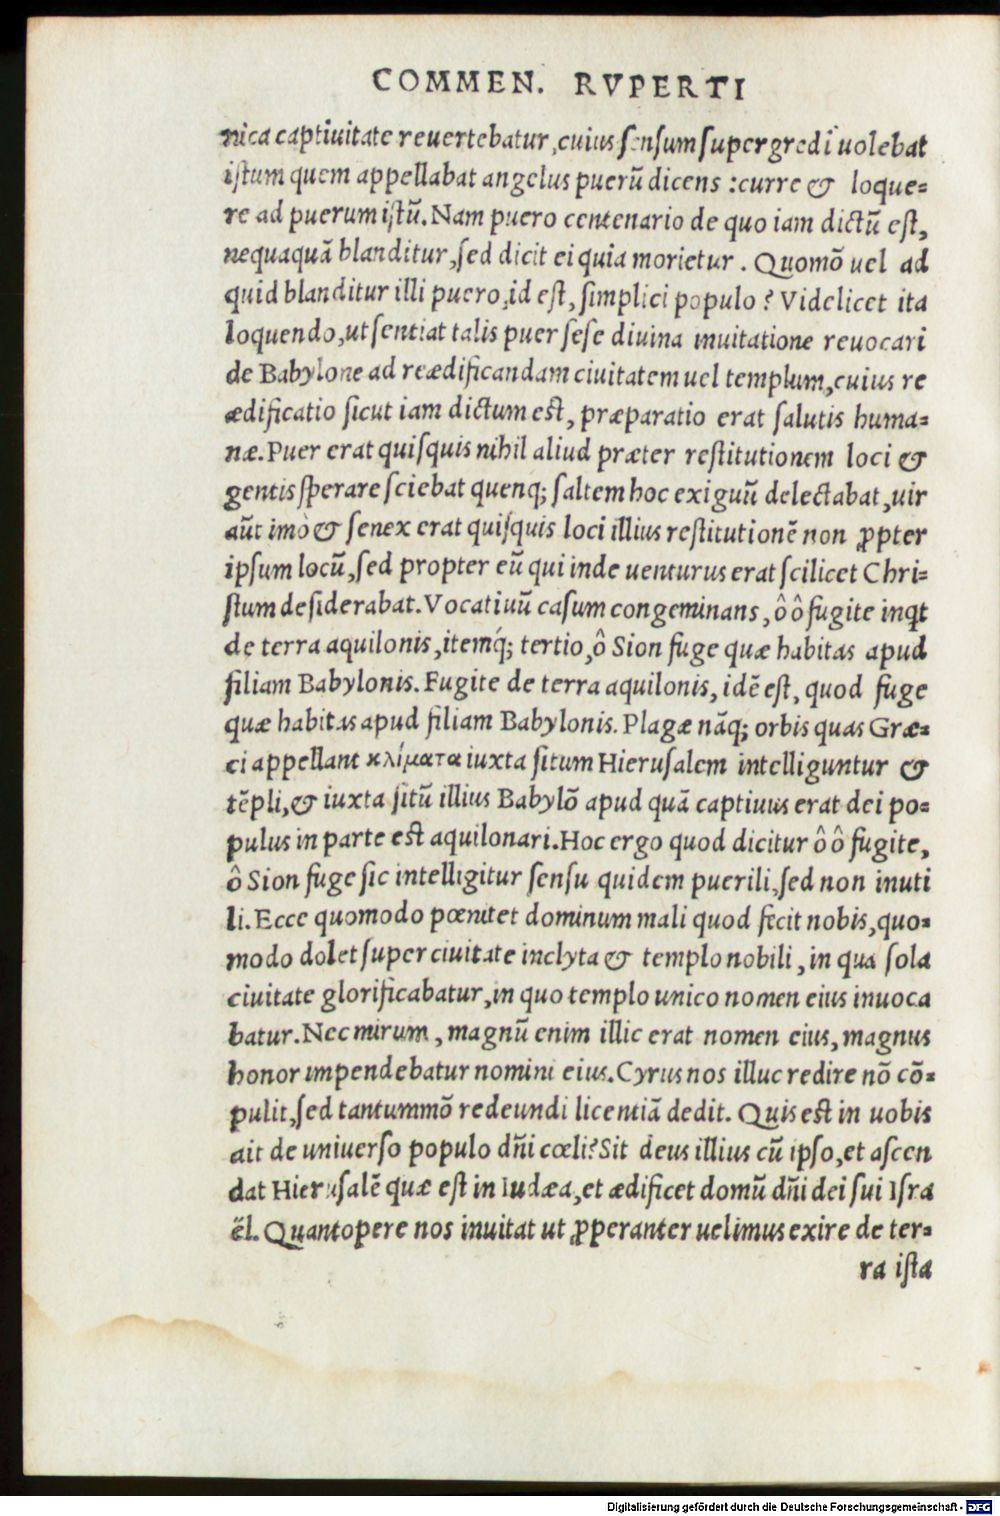 COMMEN. RVPERTI
nica captiuitate reuertebatur, cuius sensum supergredi uolebat
istum quem appellabat angelus puerū dicens : curre & loque=
re ad puerum istū. Nam puero centenario de quo iam dictū est,
nequaquā blanditur, sed dicit ei quia morietur. Quomō uel ad
quid blanditur illi puero, id est, simplici populo? Videlicet ita
loquendo, ut sentiat talis puer sese diuina inuitatione reuocari
de Babylone ad reædificandam ciuitatem uel templum, cuius re
ædificatio sicut iam dictum est, præparatio erat salutis huma=
næ. Puer erat quisquis nihil aliud præter restitutionem loci &
gentis sperare sciebat quenq; saltem hoc exiguū delectabat, uir
aūt imò & senex erat quisquis loci illius restitutionē non ꝓpter
ipsum locū, sed propter eū qui inde uenturus erat scilicet Chri=
stum desiderabat. Vocatiuū casum congeminans, ô ô fugite inqt
de terra aquilonis, itemq́; tertio, ô Sion fuge quæ habitas apud
filiam Babylonis. Fugite de terra aquilonis, idē est, quod fuge
quæ habitas apud filiam Babylonis. Plagæ nāq; orbis quas Græ=
ci appellant κλίματα iuxta situm Hierusalem intelliguntur &
tēpli, & iuxta sitū illius Babylō apud quā captiuus erat dei po=
pulus in parte est aquilonari. Hoc ergo quod dicitur ô ô fugite,
ô Sion fuge sic intelligitur sensu quidem puerili, sed non inuti
li. Ecce quomodo pœnitet dominum mali quod fecit nobis, quo=
modo dolet super ciuitate inclyta & templo nobili, in qua sola
ciuitate glorificabatur, in quo templo unico nomen eius inuoca
batur. Nec mirum, magnū enim illic erat nomen eius, magnus
honor impendebatur nomini eius. Cyrus nos illuc redire nō cō=
pulit, sed tantummō redeundi licentiā dedit. Quis est in uobis
ait de uniuerso populo dn̄i cœli? Sit deus illius cū ipso, et ascen
dat Hierusalē quæ est in Iudæa, et ædificet domū dn̄i dei sui Isra
ēl. Quantopere nos inuitat ut ꝓperanter uelimus exire de ter=
ra ista
Digitalisierung gefördert durch die Deutsche Forschungsgemeinschaft - DFG